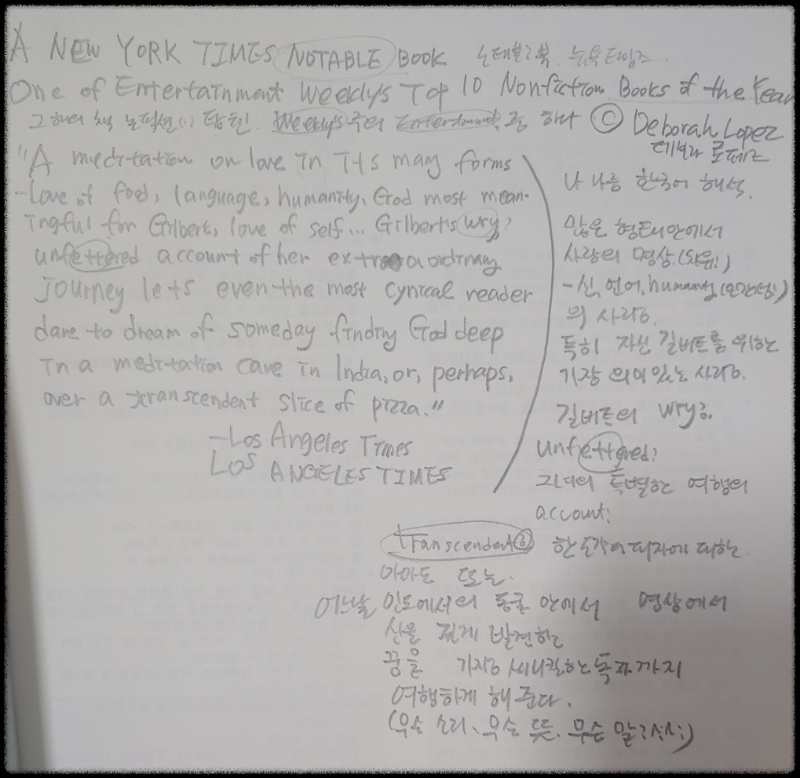 A NEW YORK TIMES NOTABLE BOOK 노태블 북, 뉴욕타임즈.
One of Entertainment Weekly's Top 10 Nonfiction Books of the Year
그 해의 책 논픽션 탑 텐. Weekly's 주의 Entertainment 중 하나 © Deborah Lopez
데보라 로페즈
"A meditation on love in its many forms
-Love of food, language, humanity, God most mean-
ingful for Gilbert, love of self... Gilbert's wry?
unfettered account of her extraordinary
journey lets even the most cynical reader
dare to dream of someday finding God deep
in a meditation cave in India, or, perhaps,
over a transcendent slice of pizza."
-Los Angeles Times
LOS ANGELES TIMES
나 나름 한국어 해석.
많은 형태안에서
사랑의 명상.
-신, 언어, humanity
의 사랑.
특히 자신 길버트를 위하는
가장 의미 있는 사랑.
길버트의 wry?
unfettered?
그녀의 특별한 여행의
account?
transcendent 한 조각의 피자에 대한
아마도 또는.
어느날 인도에서의 동굴 안에서 명상에서
신을 깊게 발견하는
꿈을 가장 씨니컬한 독자까지
여행하게 해 준다.
(무슨 소리, 무슨 뜻, 무슨 말?)